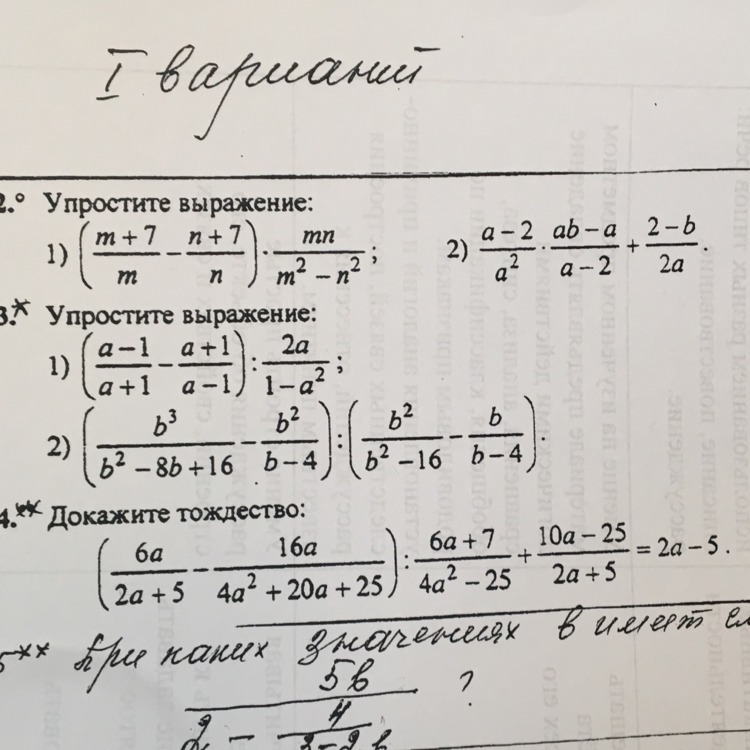 I варианий
2.° Упростите выражение:
1) ((m + 7)/m − (n + 7)/n) · mn/(m² − n²); 2) (a − 2)/a² · (ab − a)/(a − 2) + (2 − b)/2a.
3.* Упростите выражение:
1) ((a − 1)/(a + 1) − (a + 1)/(a − 1)) : 2a/(1 − a²);
2) (b³/(b² − 8b + 16) − b²/(b − 4)) : (b²/(b² − 16) − b/(b − 4)).
4.** Докажите тождество:
(6a/(2a + 5) − 16a/(4a² + 20a + 25)) : (6a + 7)/(4a² − 25) + (10a − 25)/(2a + 5) = 2a − 5.
5** При каких значениях в имеет
5в ?
2 − 4
3−2в